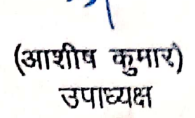 (आशीष कुमार)
उपाध्यक्ष